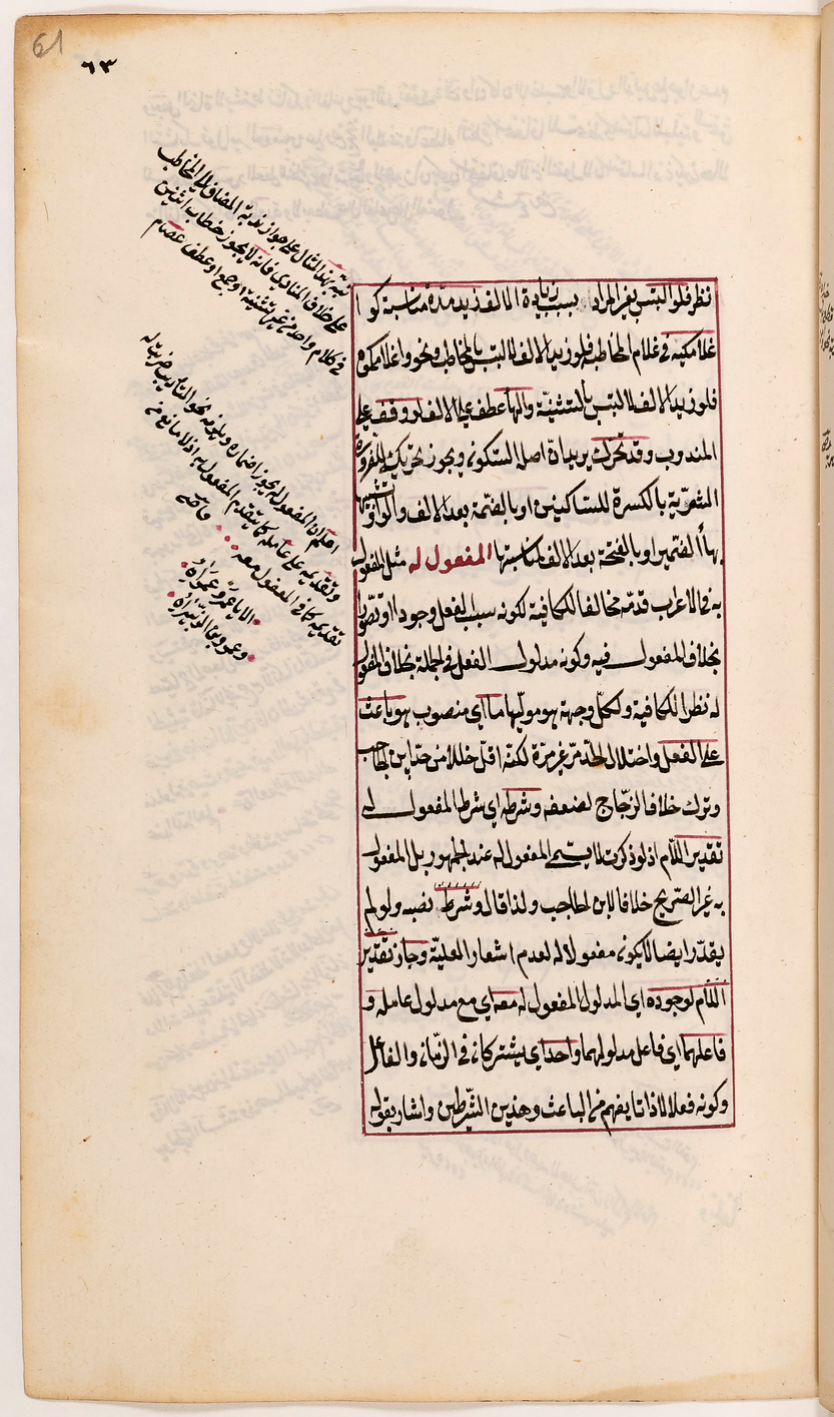 61
٦٣
نظر فلو التبس بغير المراد بسبب زيادة الالف زيد مدة مناسبة كوا
غلامكيه في غلام المخاطبة فلو زيد الالف لالتبس بالمخاطب ونحو واغلامكموه
فلو زيد الالف لالتبس بالتثنية والهاء عطف على الالف لو وقف على
المندوب وقد تحرك يريد ان اصلها السكون ويجوز تحريك للضرورة
الشعرية بالكسرة للساكنين او بالضمة بعد الالف والواو تشبيها
بهاء الضمير او بالفتحة بعد الالف لمناسبتها المفعول له مثل المفعول
به في الاعراب قدمه مخالفا للكافية لكونه سبب الفعل وجودا او تصورا
بخلاف المفعول فيه وكونه مدلول الفعل في الجملة بخلاف المفعول
له نظرا للكافية ولكل وجهة هو موليها ما اي منصوب هو باعث
على الفعل واختلال الحد مر غير مرة لكنه اقل خللا من حد ابن الحاجب
وترك خلافا للزجاج لضعفه وشرطه اي شرط المفعول له
تقدير اللام اذ لو ذكرت لا يسمى المفعول له عند الجمهور بل المفعول
به غير الصريح خلافا لابن الحاجب ولذا قال وشرط نصبه ولو لم
يقدر ايضا لا يكون مفعولا له لعدم اشعار العلية وجاز تقدير
اللام لوجوده اي المدلول المفعول له معه اي مع مدلول عامله و
فاعلهما اي فاعل مدلولهما واحد اي يشتركان في الزمان والفاعل
وكونه فعلا لا ذاتا يفهم من الباعث وهذين الشرطين واشار بقوله
نبه بهذا المثال على جواز ندبة المضاف الى المخاطب
على خلاف المنادى فانه لا يجوز خطاب اثنين
في كلام واحد من غير تثنية او جمع او عطف عصام
اعلم ان المفعول له يجوز اضماره نحو التأديب ضربت له
وتقديمه على عامله كما يتقدم المفعول به اذ لا مانع من
تقديمه كما في المفعول معه فاضل
الا يا عمرو عمراه
وعمرو بن الزبيراه